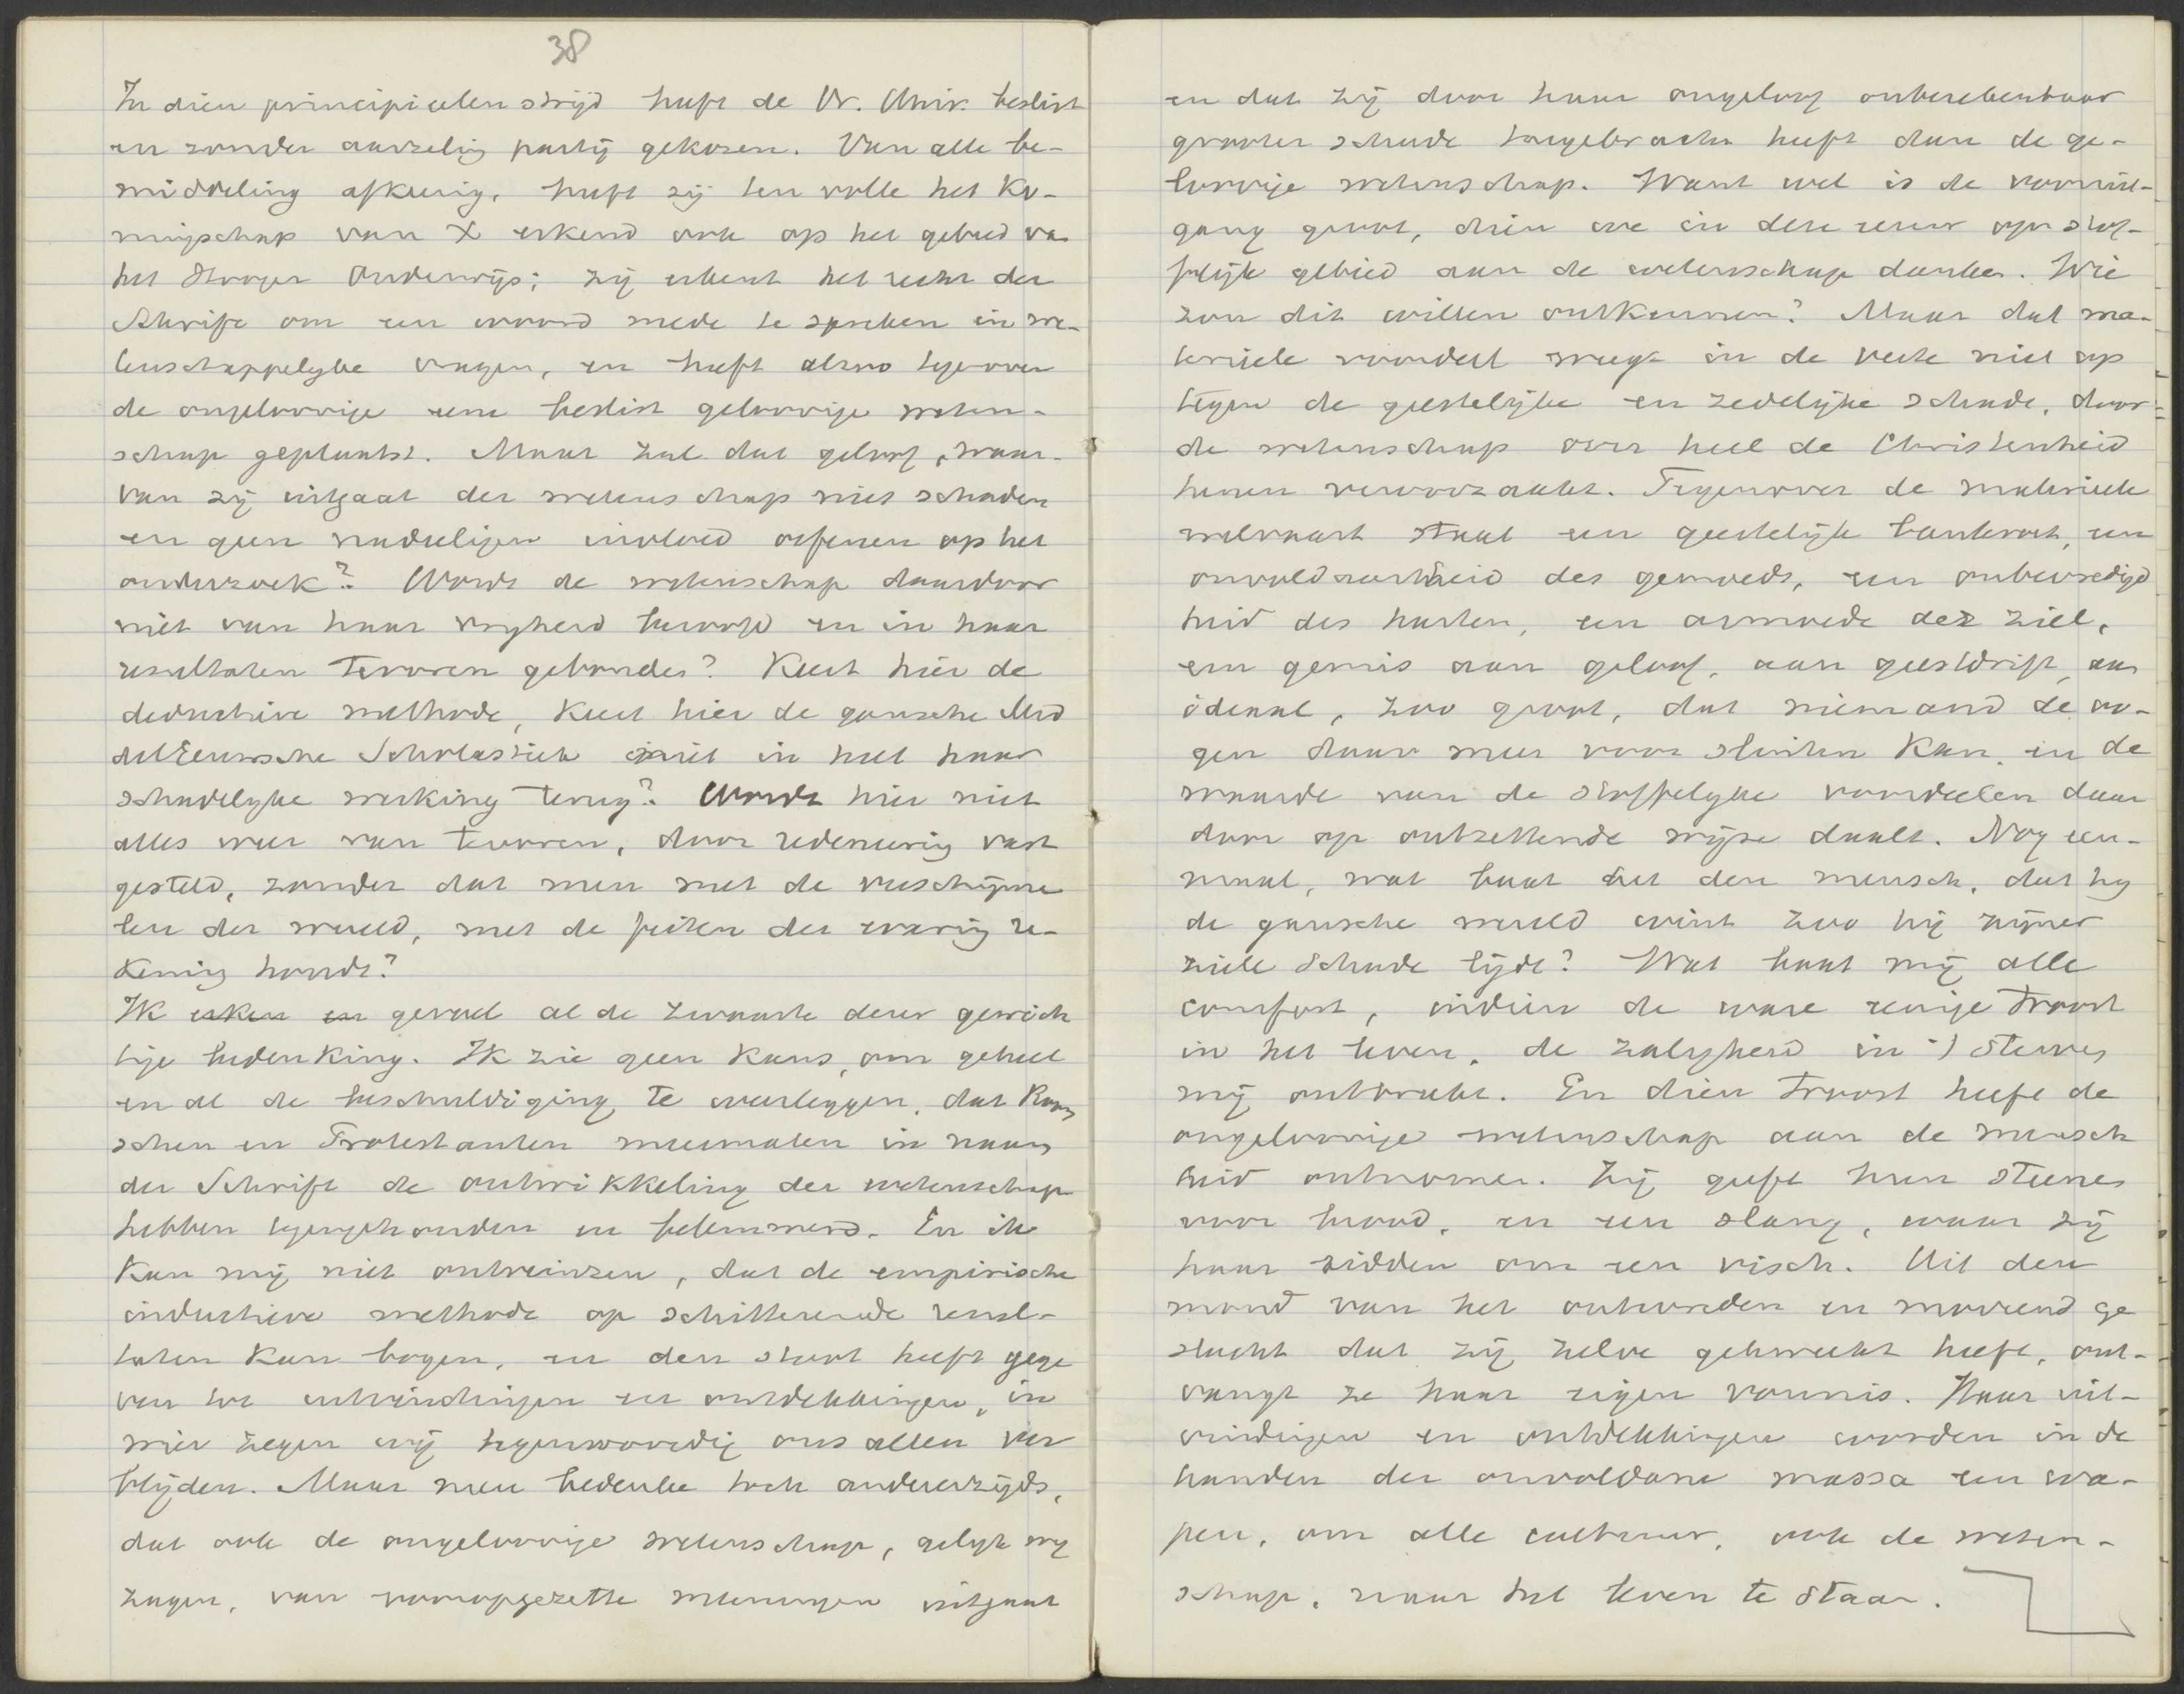 38
In dien principieelen strijd heeft de Vr. Univ. beslist
en zonder aarzeling partij gekozen. Van alle be-
middeling afkeerig, heeft zij ten volle het Ko-
ningschap van X erkend ook op het gebied va
het Hooger Onderwijs; zij erkent het recht der
Schrift om een woord mede te spreken in we-
tenschappelyke vragen, en heeft alzoo tegenover
de ongeloovige eene beslist geloovige weten-
schap geplaatst. Maar zal dat geloof, waar-
van zij uitgaat der wetenschap niet schaden
en geen nadeeligen invloed oefenen op het
onderzoek? Wordt de wetenschap daardoor
niet van haar vryheid beroofd en in haar
resultaten tevoren gebonden? Keert hier de
deductieve methode, keert hier de gansche Mid
delEeuwsche Scholastiek niet in heel haar
schadelyke werking terug? Wordt hier niet
alles weer van tevoren, door redeneering vast
gesteld, zonder dat men met de verschijnse
len der wereld, met de feiten der ervaring re-
kening houdt?
Ik erken en gevoel al de zwaarte dezer gewich
tige bedenking. Ik zie geen kans, om geheel
en al de beschuldiging te weerleggen, dat Room
schen en Protestanten meermalen in naam
der Schrift de ontwikkeling der wetenschap
hebben tegengehouden en belemmerd. En ik
kan mij niet ontveinzen, dat de empirische
inductieve methode op schitterende resul-
taten kan bogen, en den stoot heeft gege
ven tot uitvindingen en ontdekkingen, in
wier zegen wij tegenwoordig ons allen ver
blijden. Maar men bedenke toch anderzijds,
dat ook de ongeloovige wetenschap, gelyk wy
zagen, van vooropgezette meeningen uitgaat
en dat zij door haar ongeloof onberekenbaar
grooter schade toegebracht heeft dan de ge-
loovige wetenschap. Want wel is de vooruit-
gang groot, dien we in deze eeuw op stof-
felijk gebied aan de wetenschap danken. Wie
zou dit willen ontkennen? Maar dat ma-
terieele voordeel weegt in de verte niet op
tegen de geestelijke en zedelijke schade, door
de wetenschap over heel de Christenheid
henen veroorzaakt. Tegenover de materieele
welvaart staat een geestelijk bankroet, een
onvoldaanheid des gemoeds, een onbevredigd
heid des harten, een armoede der ziel,
een gemis aan geloof, aan geestdrift, aan
ideaal, zoo groot, dat niemand de oo-
gen daar meer voor sluiten kan, en de
waarde van de stoffelyke voordeelen daar
door op ontzettende wijze daalt. Nog een-
maal, wat baat het den mensch, dat hy
de gansche wereld wint zoo hij zijner
ziele schade lijdt? Wat baat mij alle
comfort, indien de ware eenige troost
in het leven, de zalygheid in 't sterven
mij ontbreekt. En dien troost heeft de
ongeloovige wetenschap aan de mensch
heid ontnomen. Zij geeft hun steenen
voor brood, en een slang, waar zij
haar bidden om een visch. Uit den
mond van het ontworteld en moorend ge
slacht dat zij zelve gekweekt heeft, ont-
vangt ze haar eigen vonnis. Haar uit-
vindingen en ontdekkingen worden in de
handen der onvoldane massa een wa-
pen, om alle cultuur, ook de weten-
schap, naar het leven te staan.